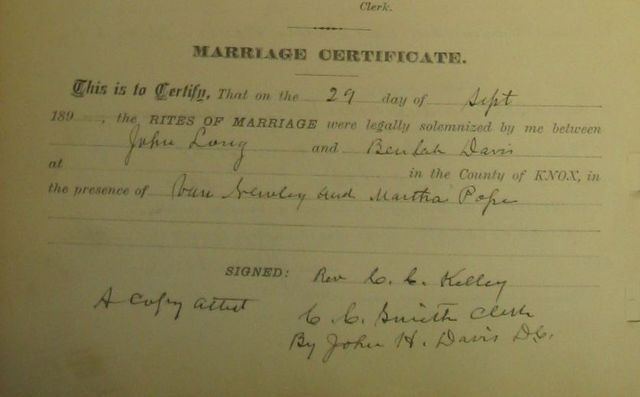 Clerk.
MARRIAGE CERTIFICATE.
This is to Certify, That on the 29 day of Sept
189 , the RITES OF MARRIAGE were legally solemnized by me between
John Long and Beulah Davis
at in the County of KNOX, in
the presence of Van and Martha Pope
SIGNED: Rev C. C. Kelley
A copy attest
C. C. Smith Clerk
By John H. Davis D.C.